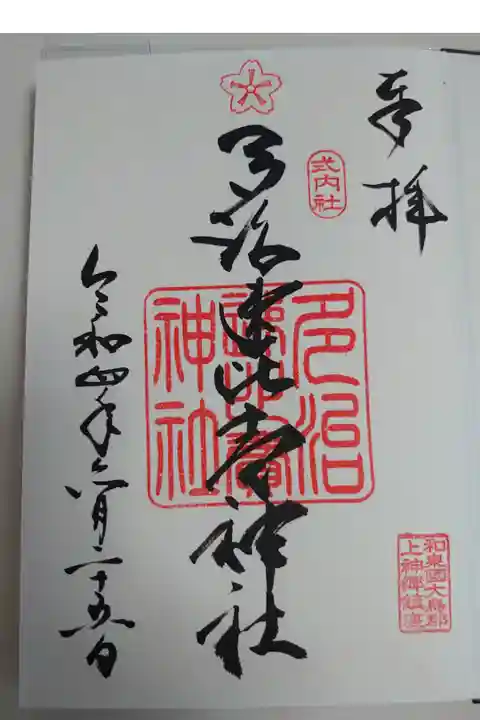 奉拝
式内社
多治速比売神社
多治
速比賣
神社
令和四年六月二十五日
和泉國大鳥郡
上神郷鎮座